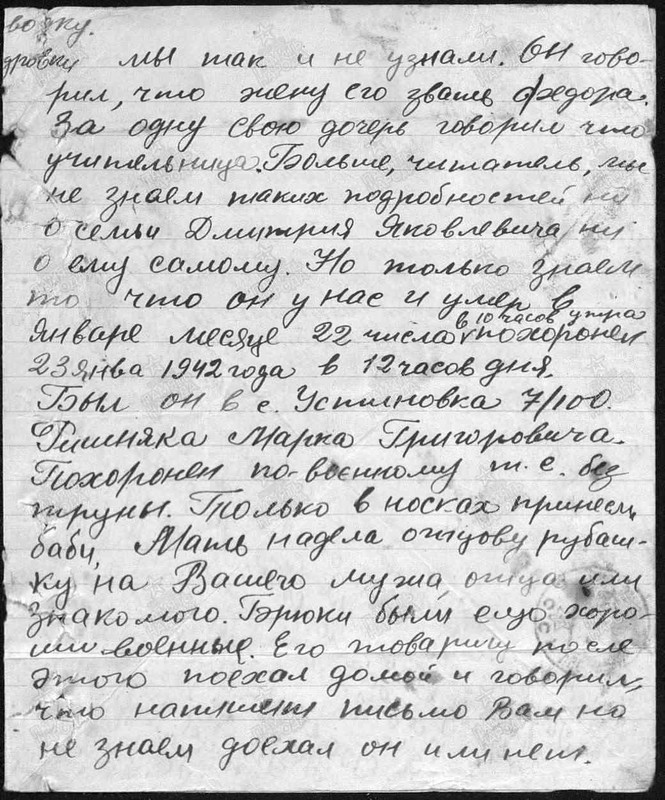 возку.
дровки мы так и не узнали. Он гово-
рил, что жену его звать Федора.
За одну свою дочерь говорил что
учительница. Больше, читатель, мы
не знаем таких подробностей ни
о семьи Дмитрия Яковлевича ни
о ему самому. Но только знаем
то что он у нас и умер в
в 10 часов утра
январе месяце 22 числа похоронен
23 янва 1942 года в 12 часов дня.
Был он в с. Устиновка 7/100.
Пшиняка Марка Григоровича.
Похоронен по-военному т. е. без
труны. Только в носках принесли
баби, Мать надела отцову рубаш-
ку на Вашего мужа отца или
знакомого. Брюки были ещо хоро-
ши военные. Его товарищ после
этого поехал домой и говорил,
что напишет письмо Вам но
не знаем доехал он или нет.